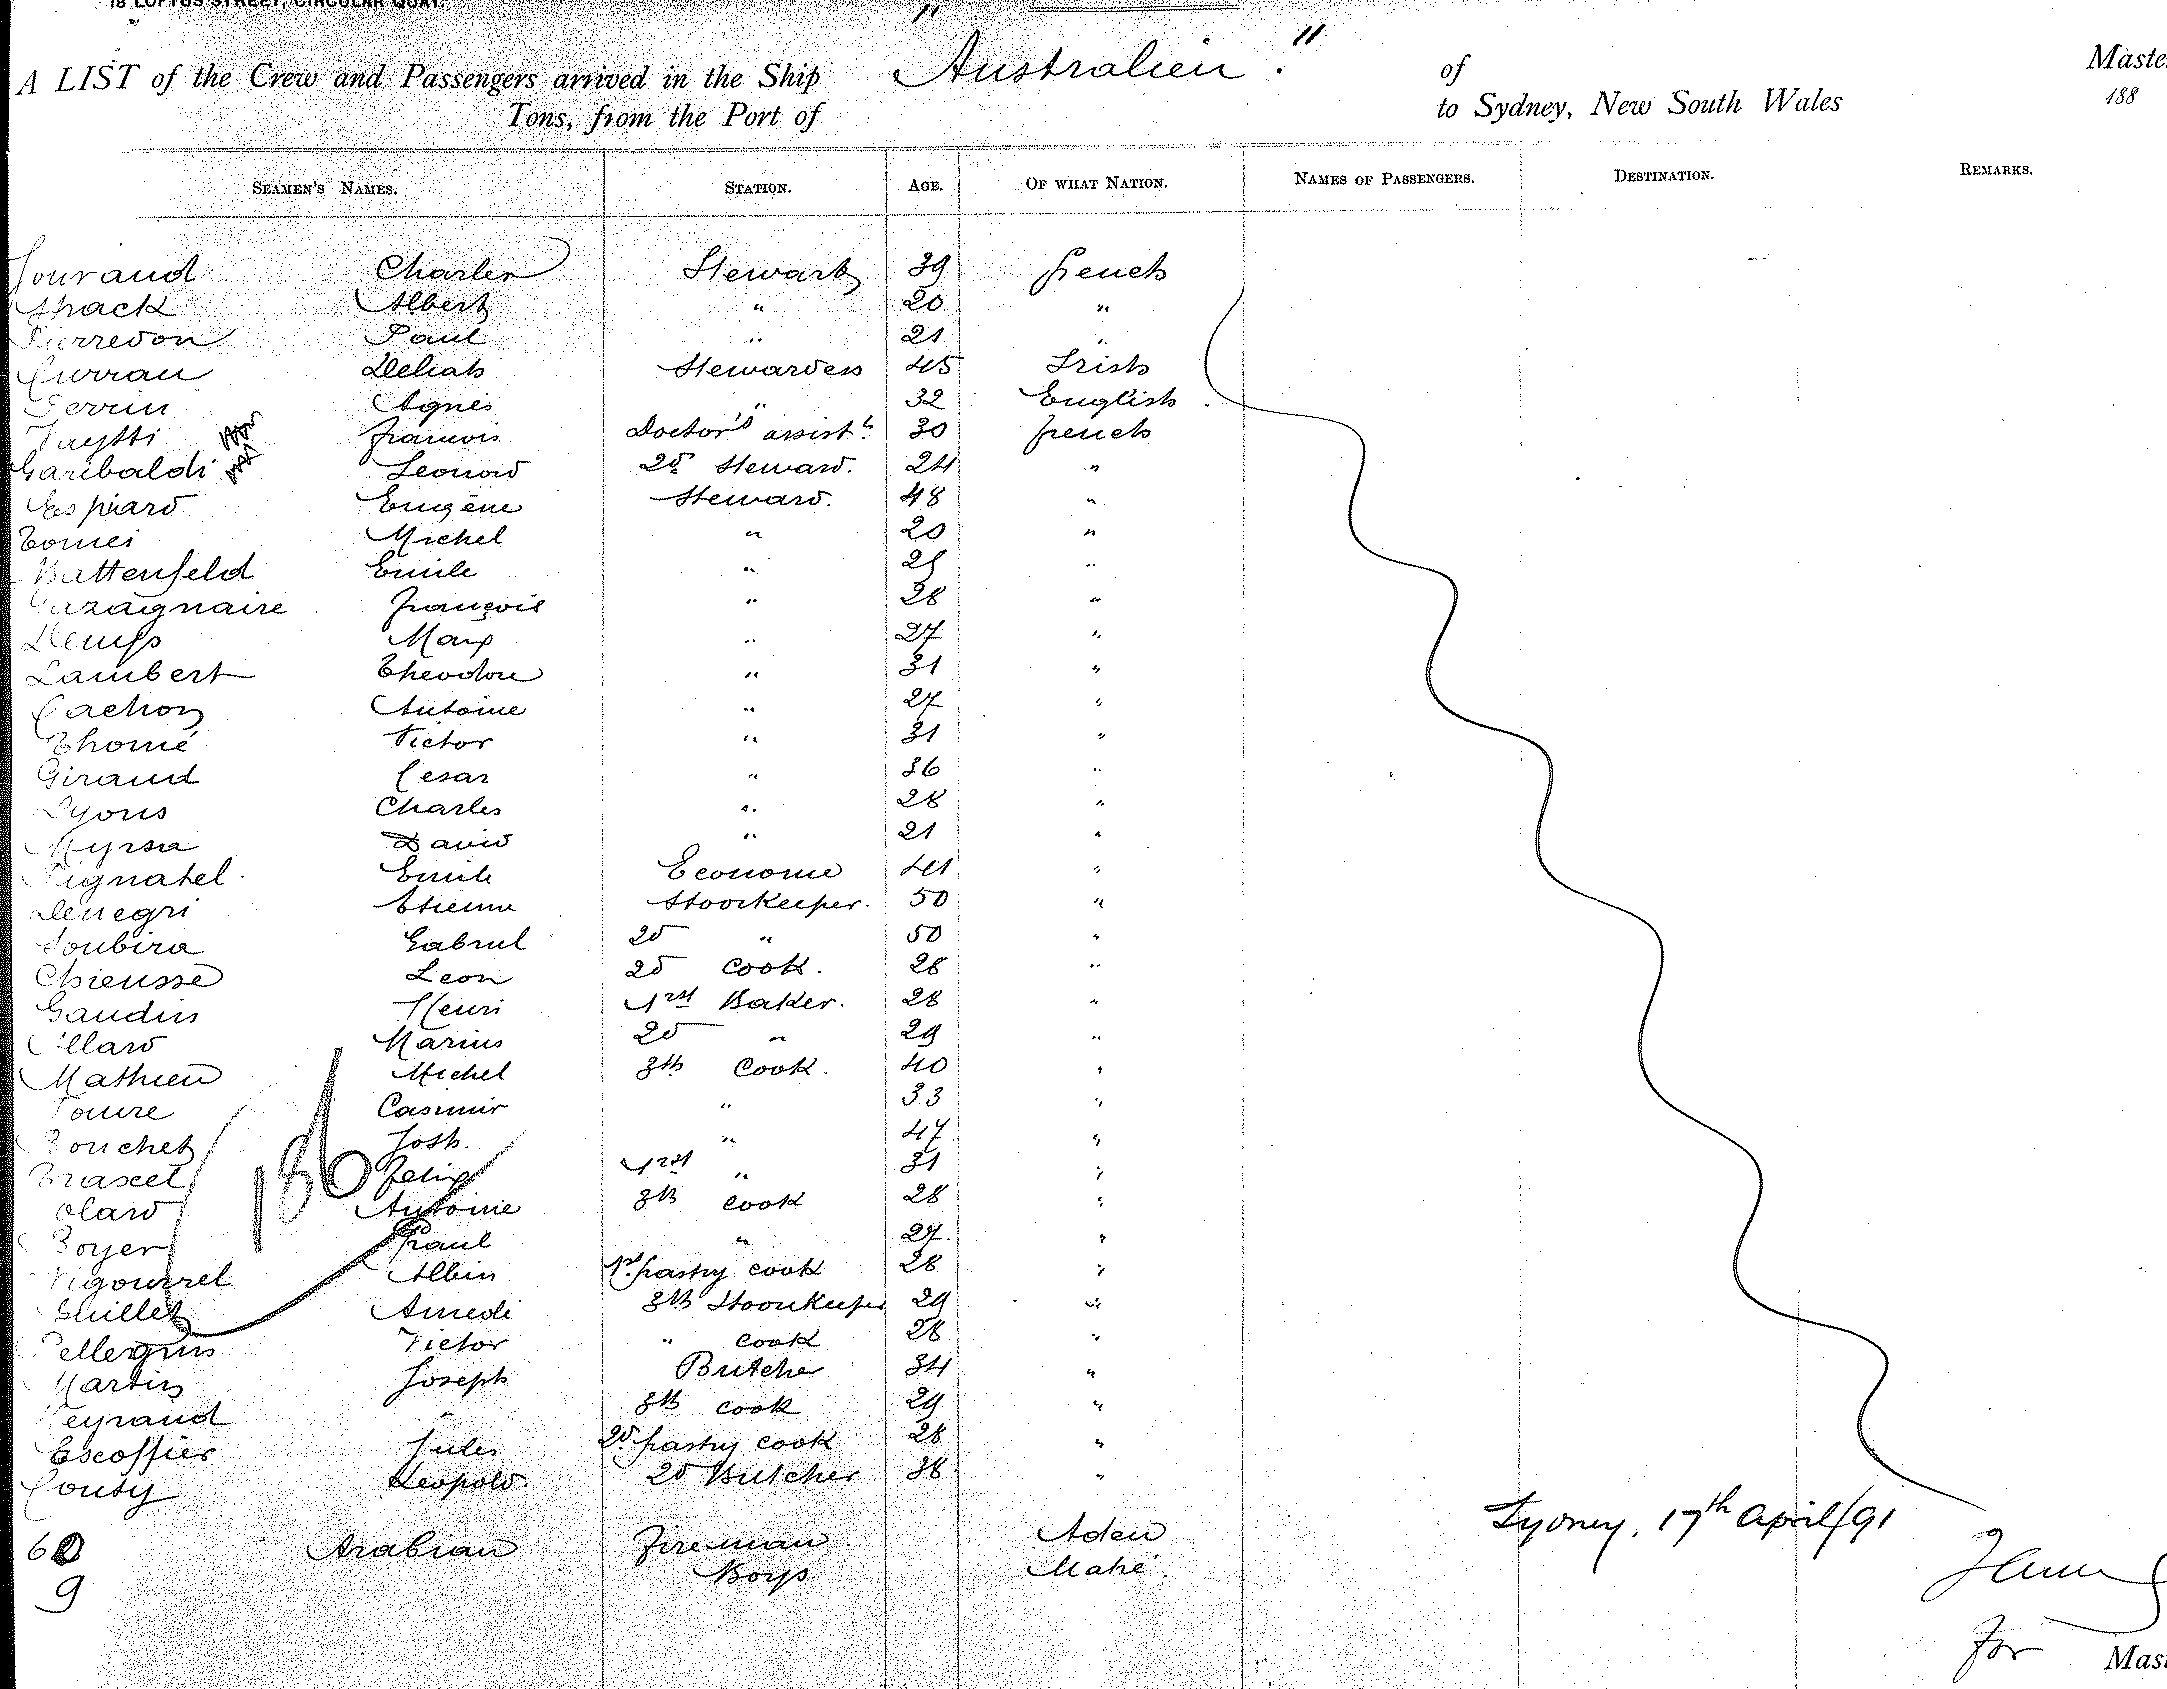 18 LOFTUS STREET, CIRCULAR QUAY.
A LIST of the Crew and Passengers arrived in the Ship "Australien." of Maste
Tons, from the Port of to Sydney, New South Wales 188
SEAMEN'S NAMES. STATION. AGE. OF WHAT NATION. NAMES OF PASSENGERS. DESTINATION. REMARKS.
Jouraud Charles Steward 39 french
Albert " 20 "
Pierredon Paul " 21 "
Curran Deliah Stewardess 45 Irish
Perrin Agnes " 32 English
francois Doctor's assist. 30 french
Garibaldi Leonard 2d Steward. 24 "
Espiard Eugène Steward. 48 "
Tomei Michel " 20 "
Battenfeld Emile " 25 "
Gazagnaire françois " 28 "
Max " 27 "
Lambert Theodore " 31 "
Cachon Antoine " 27 "
Thomé Victor " 31 "
Giraud Cesar " 36 "
Lyons Charles " 28 "
Myrsa David " 21 "
Pignatel Emile Econome 41 "
Denegri Etienne Stoorkeeper. 50 "
Soubira Gabriel 2d " 50 "
Chieusse Leon 2d Cook. 28 "
Gaudin Henri 1rst Baker. 28 "
Marius 2d " 29 "
Mathieu Michel 3th Cook. 40 "
Casimir " 33 "
Bouchet Josh. " 47 "
Felix 1rst " 31 "
Antoine 3th cook 28 "
Boyer Paul " 27 "
Vigourel Albin 1st pastry cook 28 "
Guillet Amedé 3th Stoorkeeper 29 "
Pellegrin Victor " cook 28 "
Martin Joseph Butcher 34 "
Peyraud " 3th cook 29 "
Escoffier Jules 2d pastry cook 28 "
Couty Leopold 2d Butcher 38 "
186
60 Arabian Fireman Aden
9 Boys Mahé
Sydney, 17th April/91
for Mas